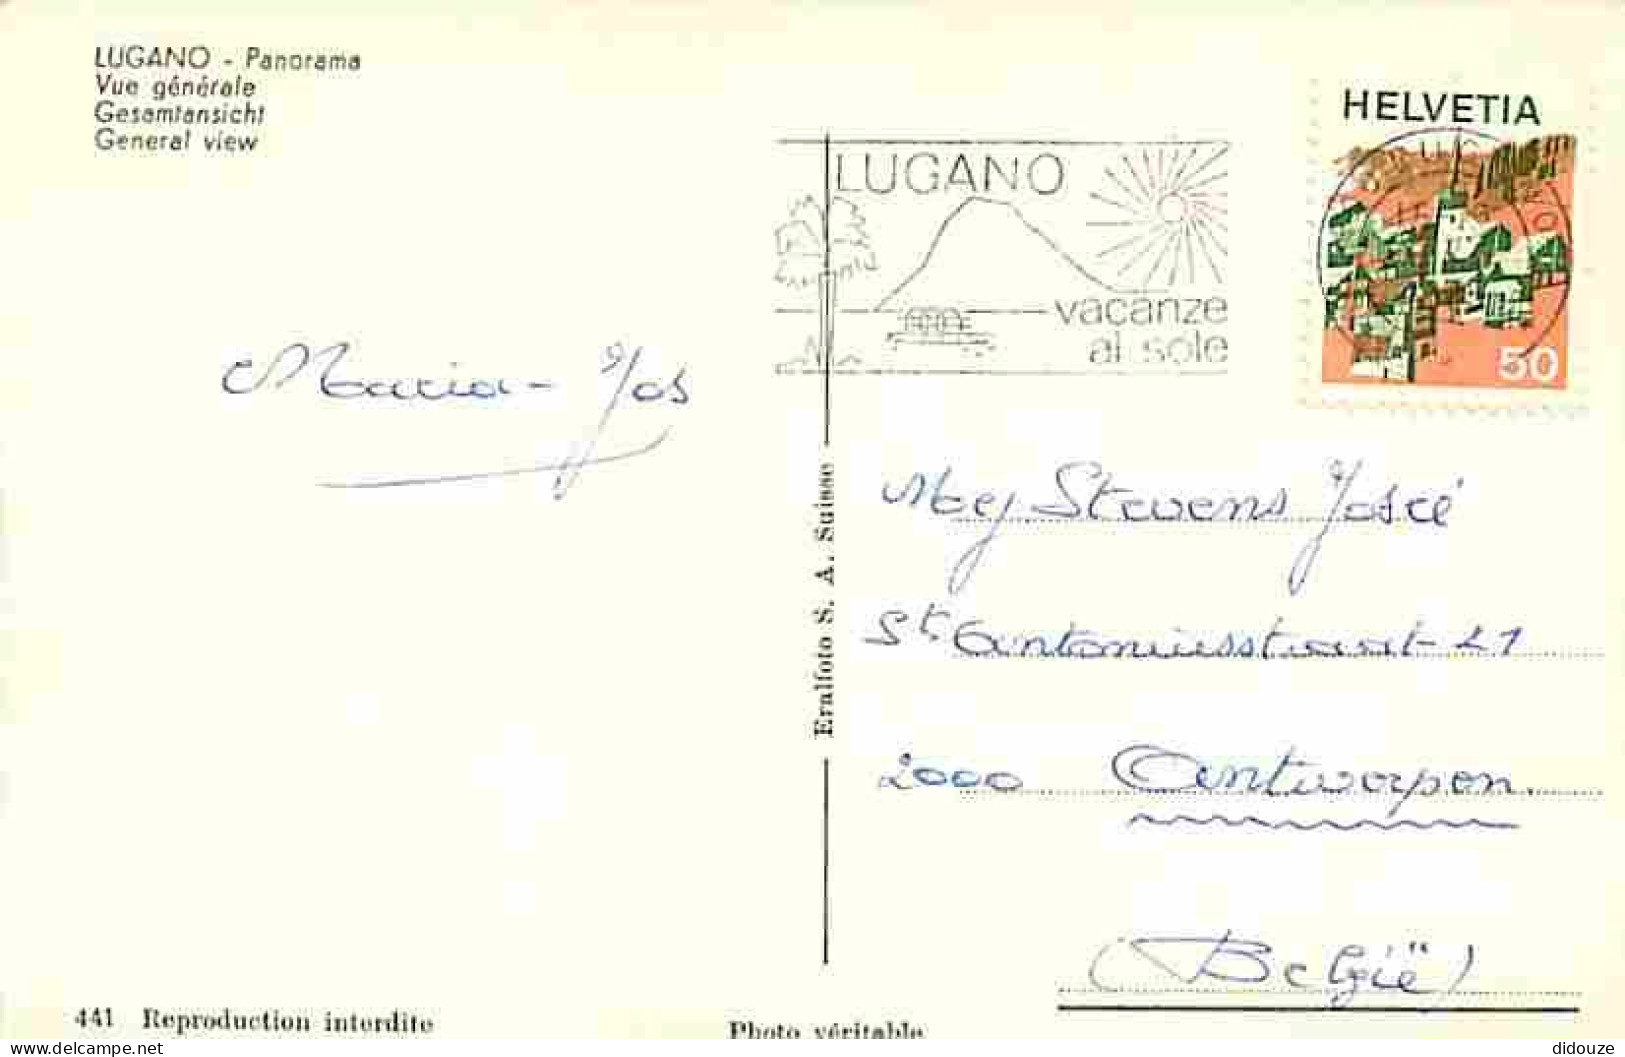 LUGANO - Panorama
Vue générale
Gesamtansicht
General view
LUGANO
vacanze
al sole
HELVETIA
50
Maria - Jos
Mej Stevens Josée
St. Antoniusstraat 21
2000 Antwerpen
(België)
Eralfoto S. A. Suisse
441 Reproduction interdite
Photo véritable
delcampe.net
didouze